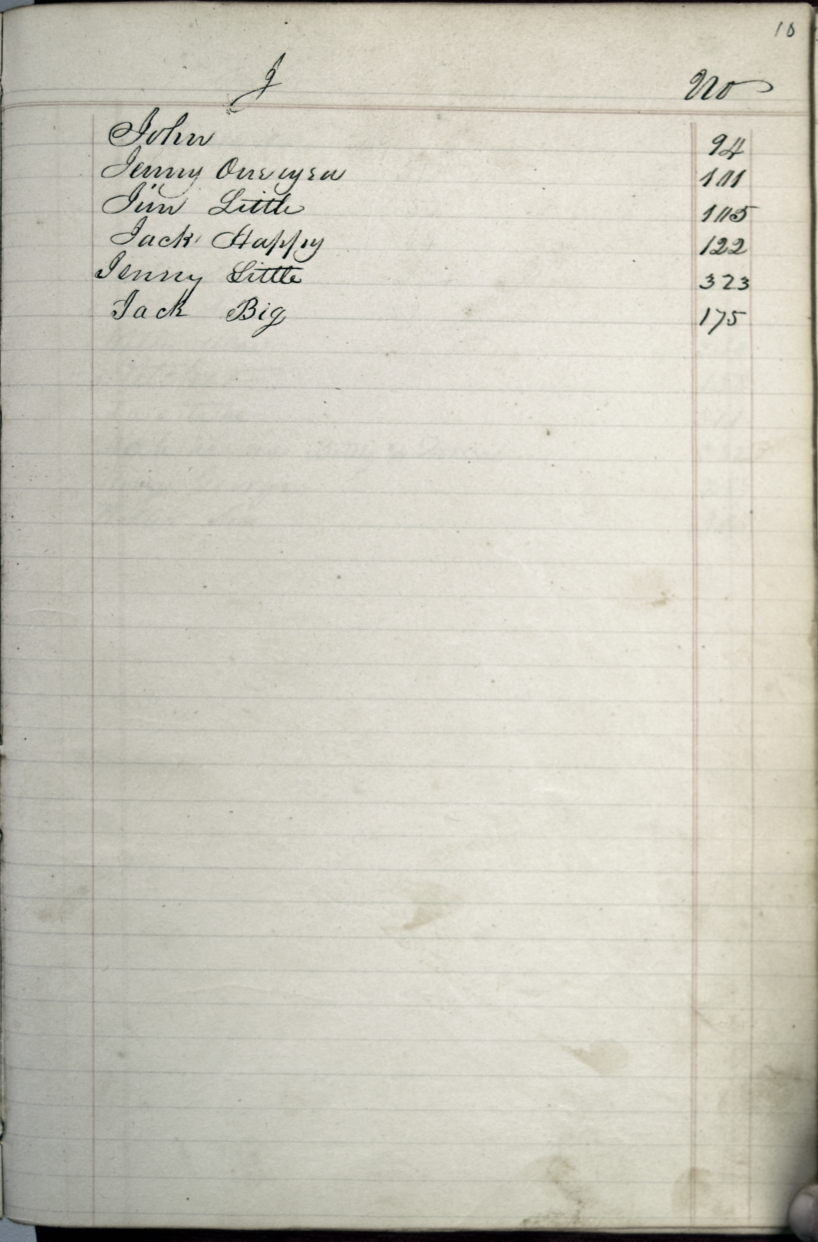 10
J No
John 94
Jenny One eyed 101
Jim Little 105
Jack Happy 122
Jenny Little 323
Jack Big 175